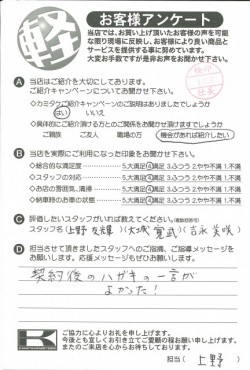 軽
お客様アンケート
当店では、お買い上げ頂いたお客様の声を可能
な限り現場に反映し、お客様により良い商品と
サービスを提供する事に努めています。
大変お手数ですが是非お声をお聞かせ下さい。
A 当店はご紹介を大切にしております。
ご紹介キャンペーンについてお聞かせ下さい。
◇カミタケご紹介キャンペーンのご説明はありましたでしょうか
はい いいえ
◇具体的にご紹介頂ける方とのご関係をお聞かせ頂けますでしょうか
ご親族 ご友人 職場の方 機会があれば紹介したい
B 当店を実際にご利用になった印象をお聞かせ下さい。
◇総合的な満足度 5.大満足 4.満足 3.ふつう 2.やや不満 1.不満
◇スタッフの対応 5.大満足 4.満足 3.ふつう 2.やや不満 1.不満
◇お店の雰囲気、清掃 5.大満足 4.満足 3.ふつう 2.やや不満 1.不満
◇納車時のお車の状態 5.大満足 4.満足 3.ふつう 2.やや不満 1.不満
C 評価したいスタッフがいれば教えてください。(複数回答可)
スタッフ名(上野 友輝)(大城 寛武)(吉永 美咲)
D 担当させて頂きましたスタッフへのご指摘、ご指導メッセージを
お願いします。応援メッセージもぜひお願いします。
契約後のハガキの一言が
よかった!
ご協力に心よりお礼を申し上げます。
今後とも宜しくお引き立てご愛顧の程お願い申し上げます。
またのご来店を心からお待ちしております。
担当( 上野 )